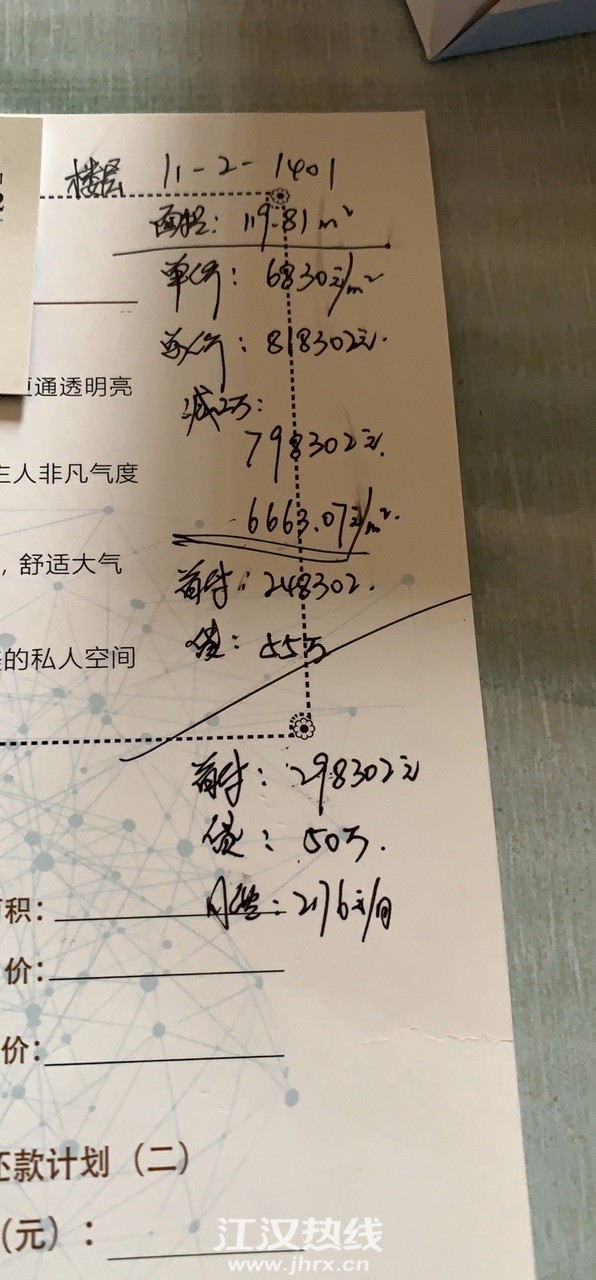 楼层 11-2-1401
面积: 119.81m²
单价: 6830元/m²
总价: 818302元.
通透明亮
减2万:
798302元.
主人非凡气度
6663.07元/m².
, 舒适大气
首付: 248302.
贷: 55万
的私人空间
首付: 298302元
贷: 50万.
积:
月供: 2176元/月
价:
价:
还款计划（二）
(元)：
江汉热线
www.jhrx.cn